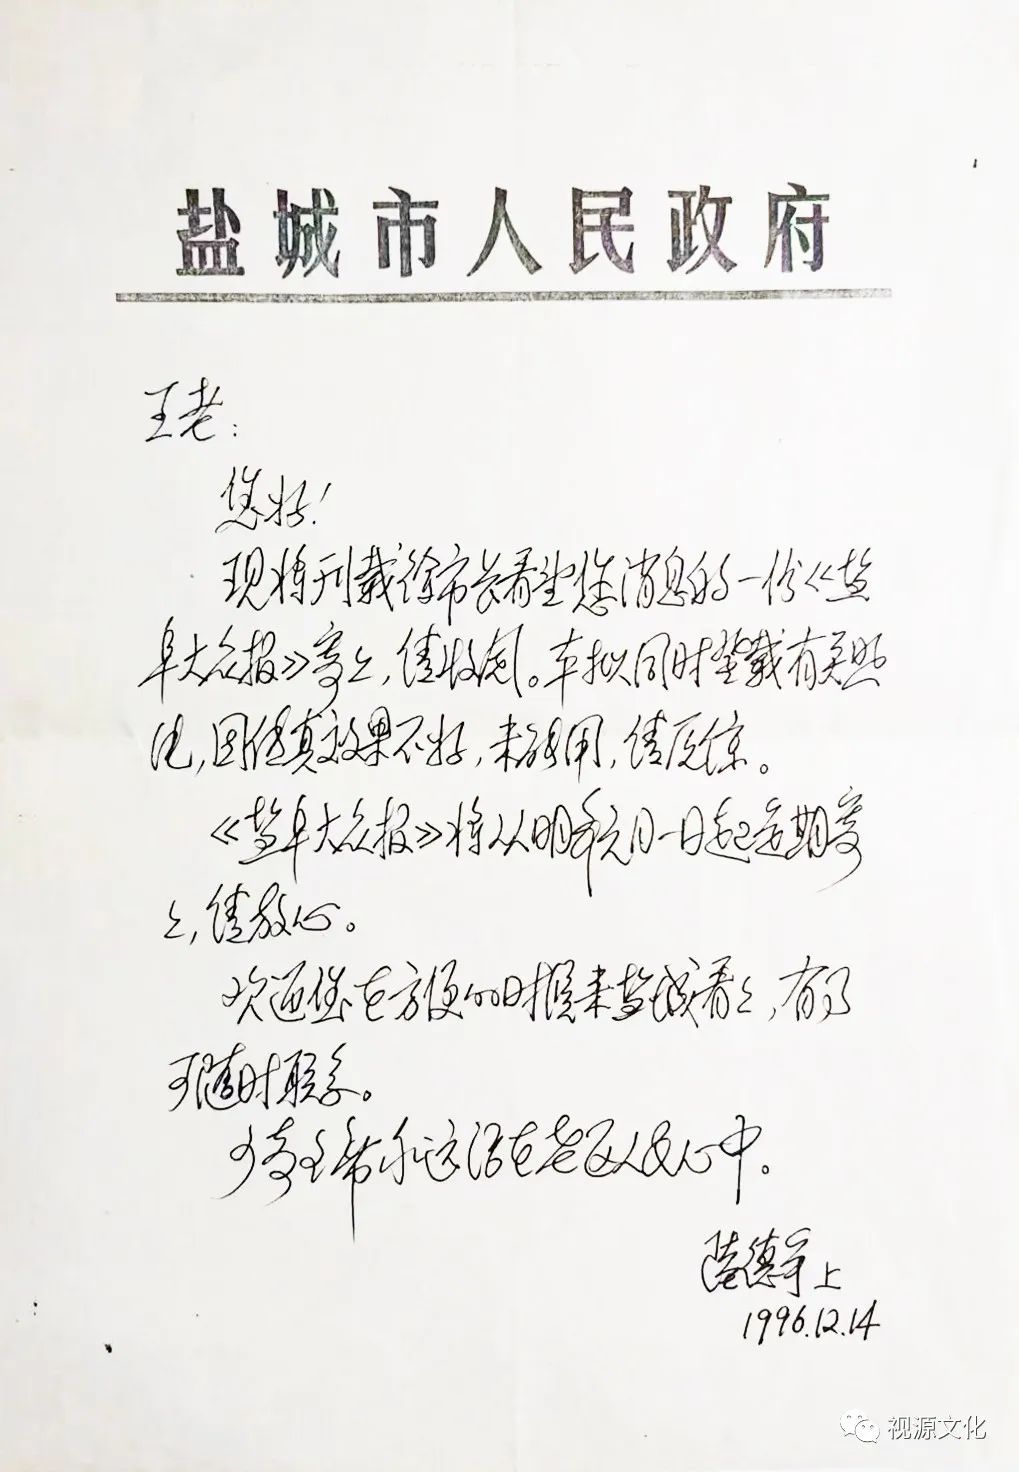 盐城市人民政府
王老：
您好！
现将刊载徐市长看望您消息的一份《盐
阜大众报》寄上，请收阅。本拟同时登载有关照
片，因传真效果不好，未能用，请原谅。
《盐阜大众报》将从明年元月一日起逐期寄
上，请放心。
欢迎您在方便的时候来盐城看看，有事
可随时联系。
少奇主席永远活在老区人民心中。
德宇上
1996.12.14
视源文化